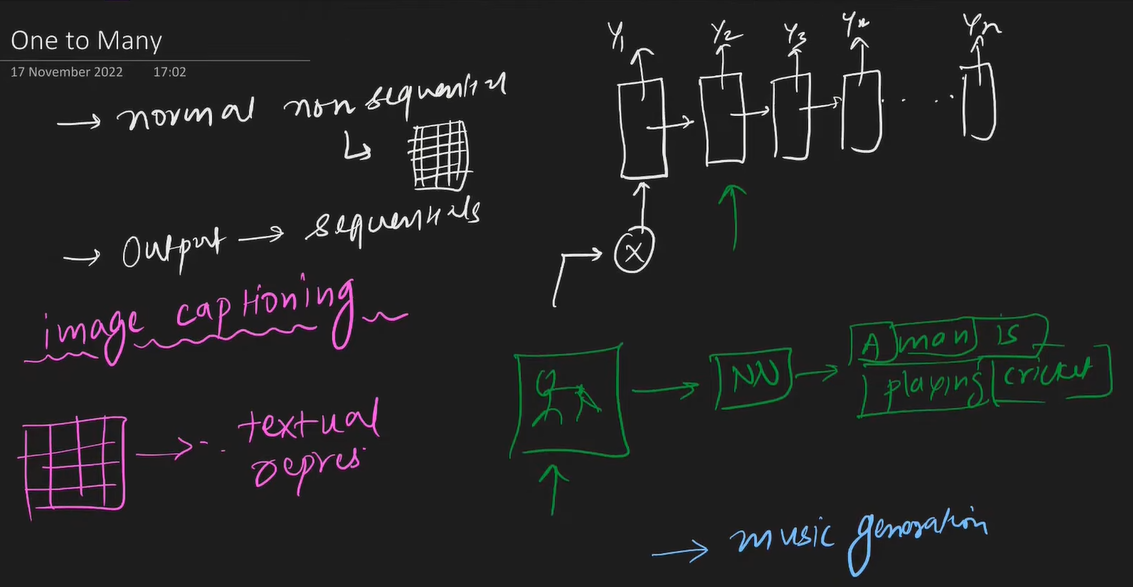 One to Many
17 November 2022 17:02
→ normal non sequential
→ Output → sequentials
image captioning
textual
depres
Y1 Y2 Y3 Y4 Yn
X
NN
A man is
playing cricket
→ music generation